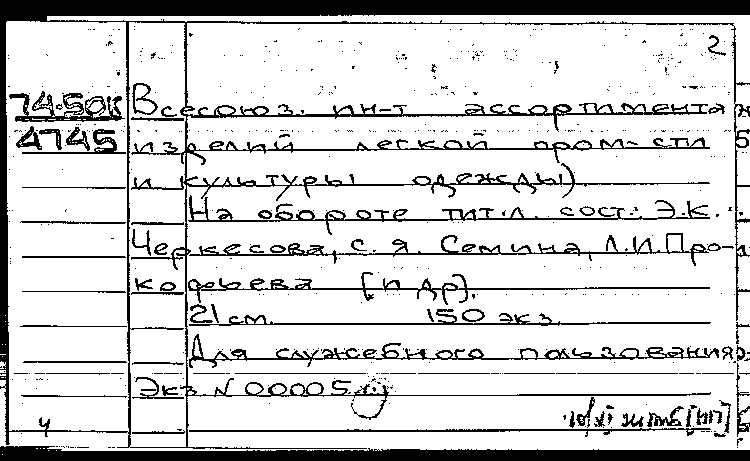 2
74-50К Всесоюз. ин-т ассортимента
4745 изделий легкой пром-сти
и культуры одежды).
На обороте тит.л. сост.: Э.К.
Черкесова, С.Я. Семина, Л.И. Про-
кофьева [и др].
21 см. 150 экз.
Для служебного пользования
Экз N 00005
4